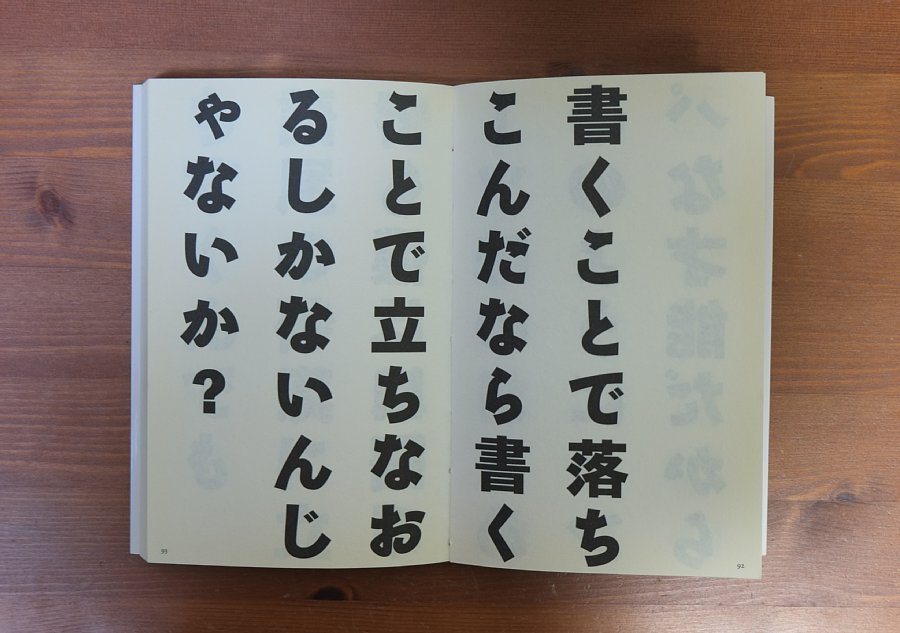 書くことで落ち
こんだなら書く
ことで立ちなお
るしかないんじ
ゃないか?
92
93